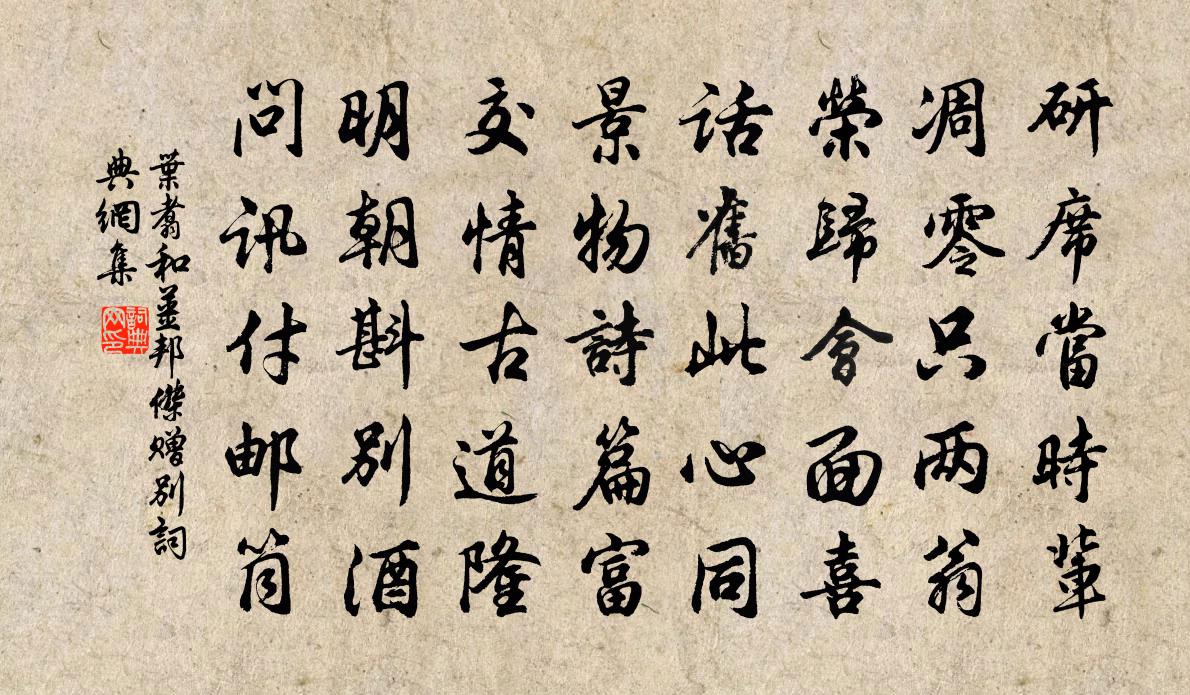 研席當時輩
凋零只兩翁
榮歸會面喜
話舊此心同
景物詩篇富
交情古道隆
明朝斟別酒
問訊付邮筒
葉翥和姜邦傑贈別詞
典網集
詞典
网印